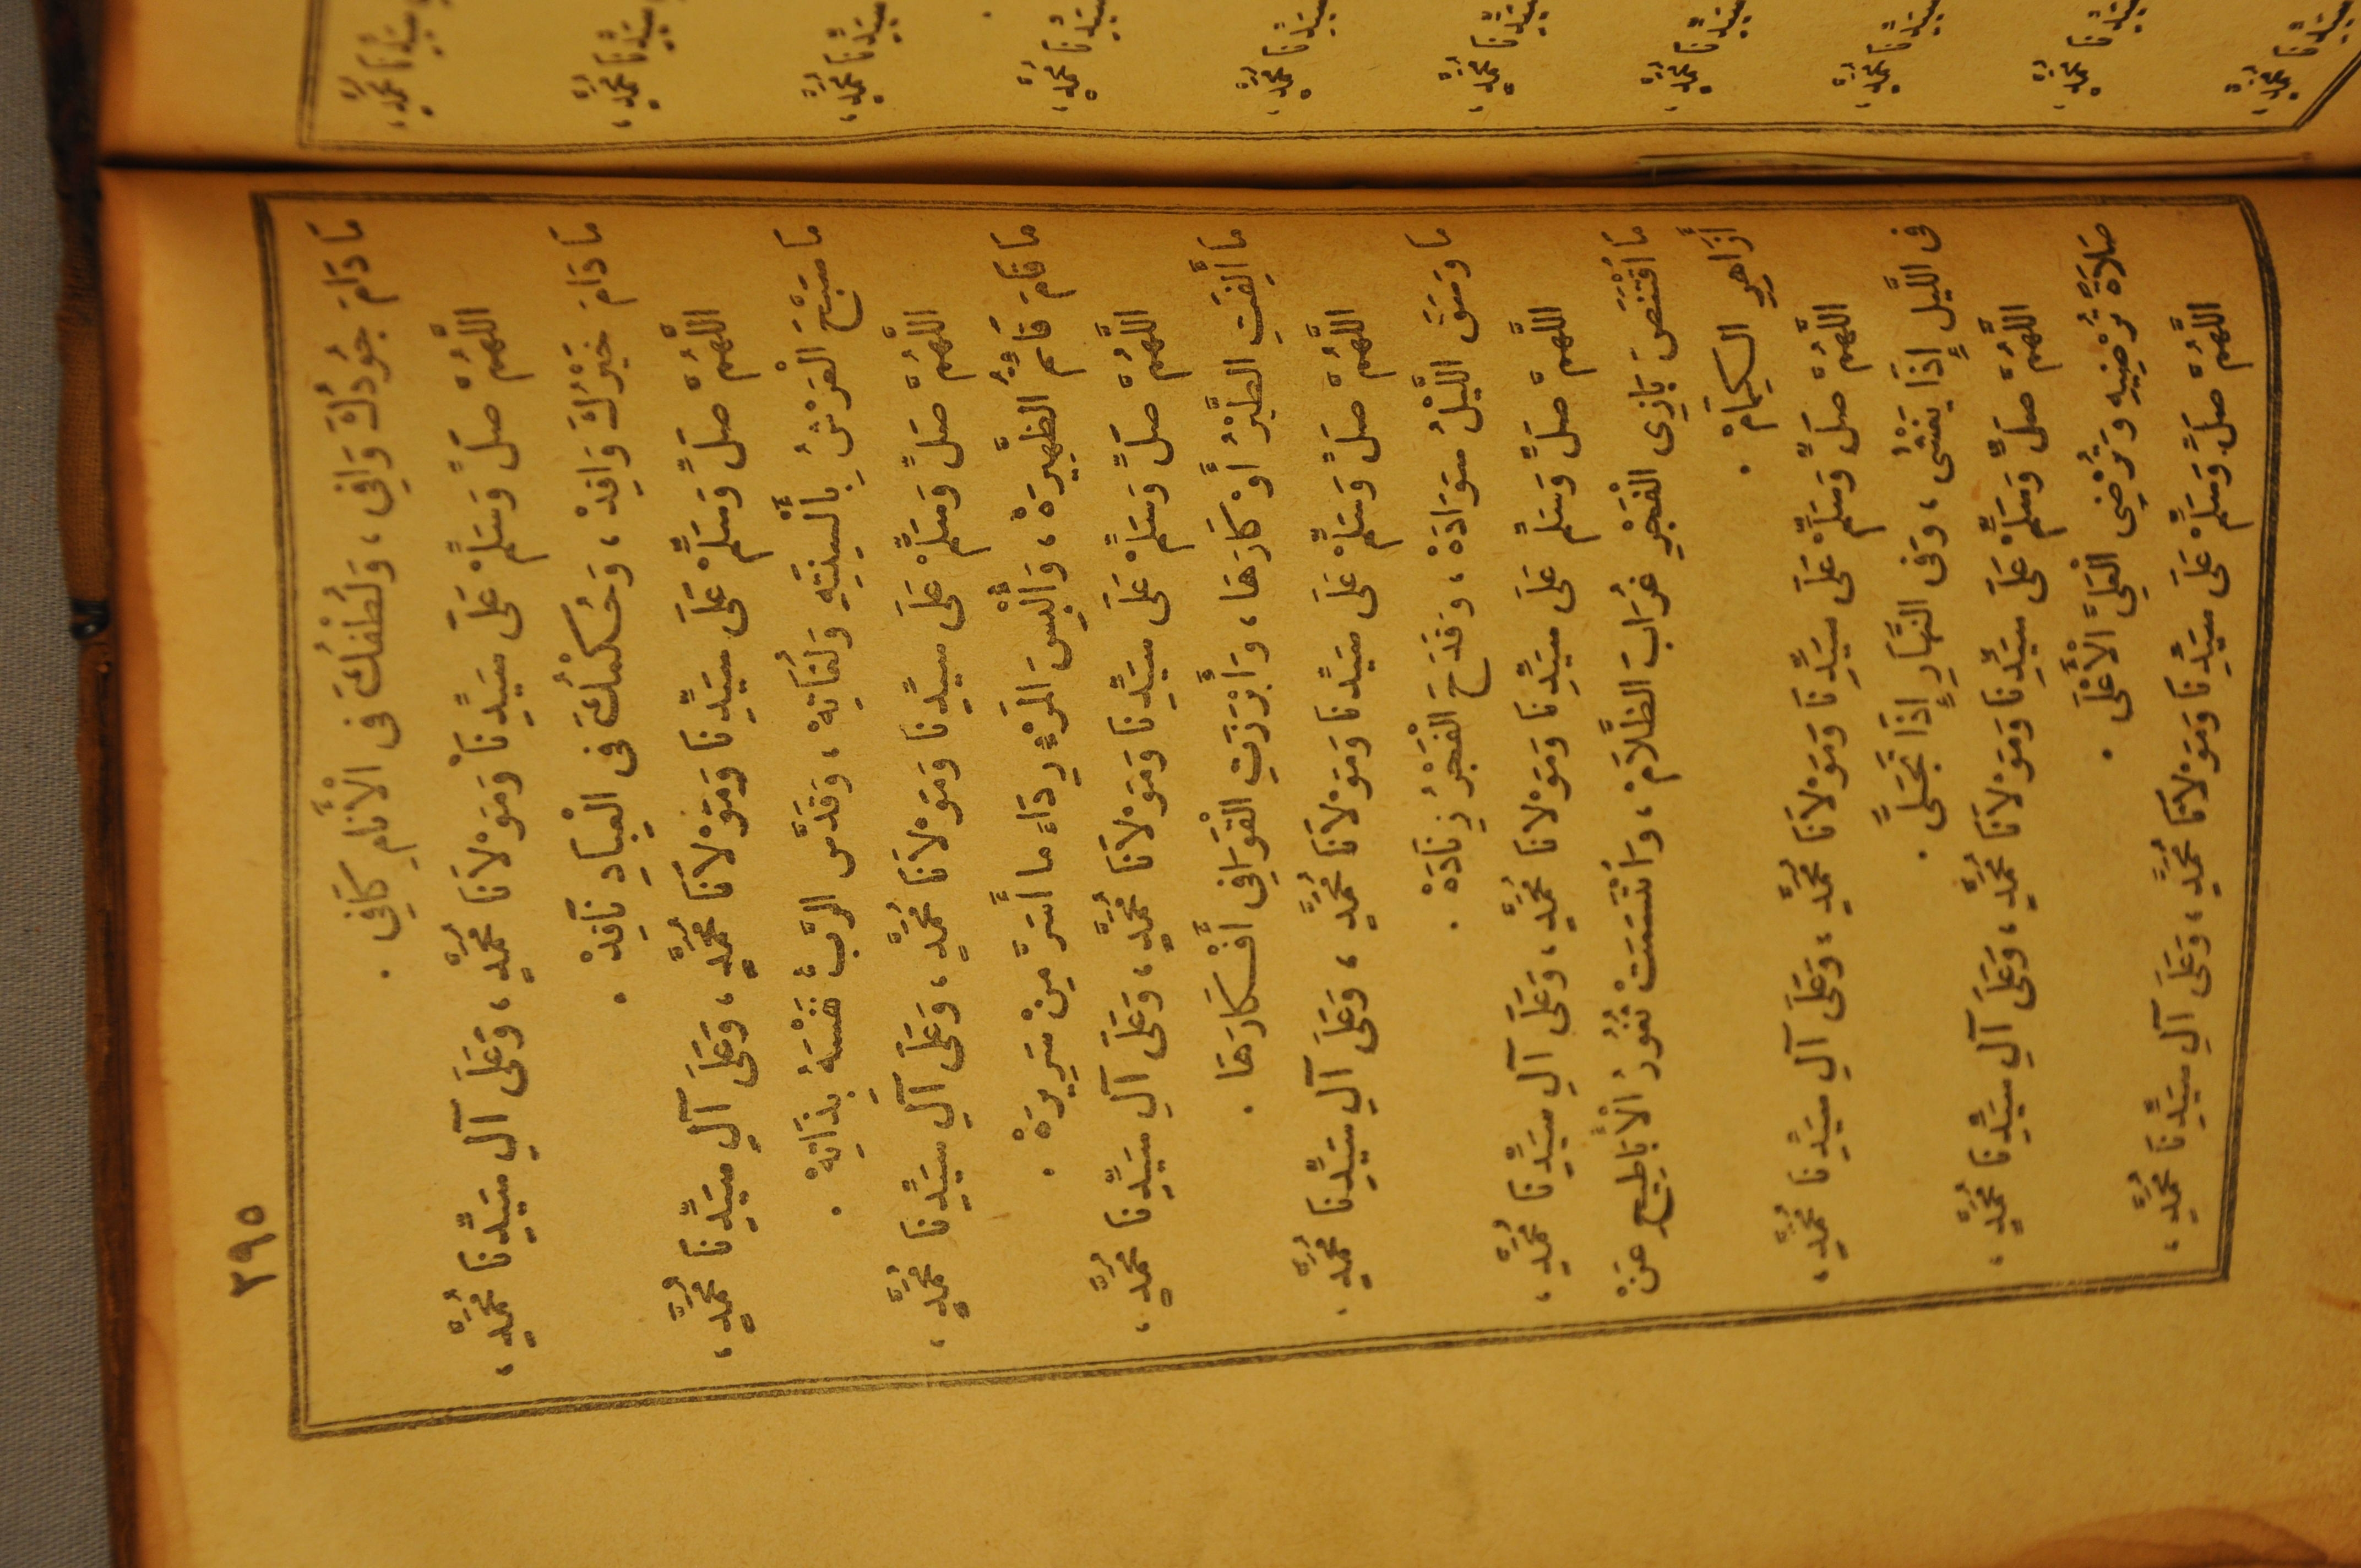 ٢٩٥
مَا دَامَ جُودُكَ وَافِى ، وَلُطْفُكَ فى الْأَنَامِ كَافِى .
اللَّهُمَّ صَلِّ وَسَلِّمْ عَلَى سَيِّدِنَا وَمَوْلَانَا مُحَمَّدٍ ، وَعَلَى آلِ سَيِّدِنَا مُحَمَّدٍ ،
مَا دَامَ خَيْرُكَ وَافِدْ ، وَحُكْمُكَ فى الْعِبَادِ نَافِدْ .
اللَّهُمَّ صَلِّ وَسَلِّمْ عَلَى سَيِّدِنَا وَمَوْلَانَا مُحَمَّدٍ ، وَعَلَى آلِ سَيِّدِنَا مُحَمَّدٍ ،
مَا سَبَّحَ الْعَرْشُ بِأَلْسِنَتِهِ وَلُغَاتِهْ ، وَقَدَّسَ الرَّبُّ نَفْسَهُ بِذَاتِهْ .
اللَّهُمَّ صَلِّ وَسَلِّمْ عَلَى سَيِّدِنَا وَمَوْلَانَا مُحَمَّدٍ ، وَعَلَى آلِ سَيِّدِنَا مُحَمَّدٍ ،
مَا قَامَ قَائمُ الظَّهِيرَةْ ، وَأُلْبِسَ الْمَرْءُ رِدَاءَ ما أَسَرَّ مِنْ سَرِيرَةْ .
اللَّهُمَّ صَلِّ وَسَلِّمْ عَلَى سَيِّدِنَا وَمَوْلَانَا مُحَمَّدٍ ، وَعَلَى آلِ سَيِّدِنَا مُحَمَّدٍ ،
مَا أَلِفَتِ الطَّيْرُ أَوْكَارَهَا ، وَأَبْرَزَتِ الْقَوَافِى أَفْكَارَهَا .
اللَّهُمَّ صَلِّ وَسَلِّمْ عَلَى سَيِّدِنَا وَمَوْلَانَا مُحَمَّدٍ ، وَعَلَى آلِ سَيِّدِنَا مُحَمَّدٍ .
مَا وَسَقَ اللَّيْلُ سَوَادَهْ ، وَقَدَحَ الْفَجْرُ زِنَادَهْ .
اللَّهُمَّ صَلِّ وَسَلِّمْ عَلَى سَيِّدِنَا وَمَوْلَانَا مُحَمَّدٍ ، وَعَلَى آلِ سَيِّدِنَا مُحَمَّدٍ ،
مَا اقْتَنَصَ بَازِى الْفَجْرِ غُرَابَ الظَّلَامْ ، وَابْتَسَمَتْ ثُغُورُ الْأَبَاطِيحِ عَنْ
أَزَاهِرِ الْكِمَامْ .
اللَّهُمَّ صَلِّ وَسَلِّمْ عَلَى سَيِّدِنَا وَمَوْلَانَا مُحَمَّدٍ ، وَعَلَى آلِ سَيِّدِنَا مُحَمَّدٍ ،
فى اللَّيْلِ إِذَا يَغْشَى ، وَفى النَّهَارِ إِذَا تَجَلَّى .
اللَّهُمَّ صَلِّ وَسَلِّمْ عَلَى سَيِّدِنَا وَمَوْلَانَا مُحَمَّدٍ ، وَعَلَى آلِ سَيِّدِنَا مُحَمَّدٍ ،
صَلَاةً تُرْضِيهِ وَتُرْضِى الْعَلِىَّ الْأَعْلَى .
اللَّهُمَّ صَلِّ وَسَلِّمْ عَلَى سَيِّدِنَا وَمَوْلَانَا مُحَمَّدٍ ، وَعَلَى آلِ سَيِّدِنَا مُحَمَّدٍ ،
سَيِّدِنَا مُحَمَّدٍ ،
سَيِّدِنَا مُحَمَّدٍ ،
سَيِّدِنَا مُحَمَّدٍ ،
سَيِّدِنَا مُحَمَّدٍ ،
سَيِّدِنَا مُحَمَّدٍ ،
سَيِّدِنَا مُحَمَّدٍ ،
سَيِّدِنَا مُحَمَّدٍ ،
سَيِّدِنَا مُحَمَّدٍ ،
سَيِّدِنَا مُحَمَّدٍ ،
سَيِّدِنَا مُحَمَّدٍ ،